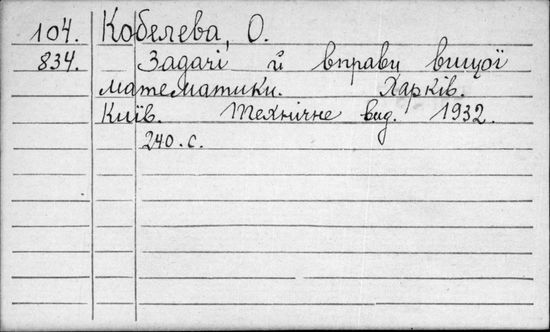 104. Кобелева, О.
834. Задачі й вправи вищої
математики. Харків.
Київ. Технічне вид. 1932.
240.с.